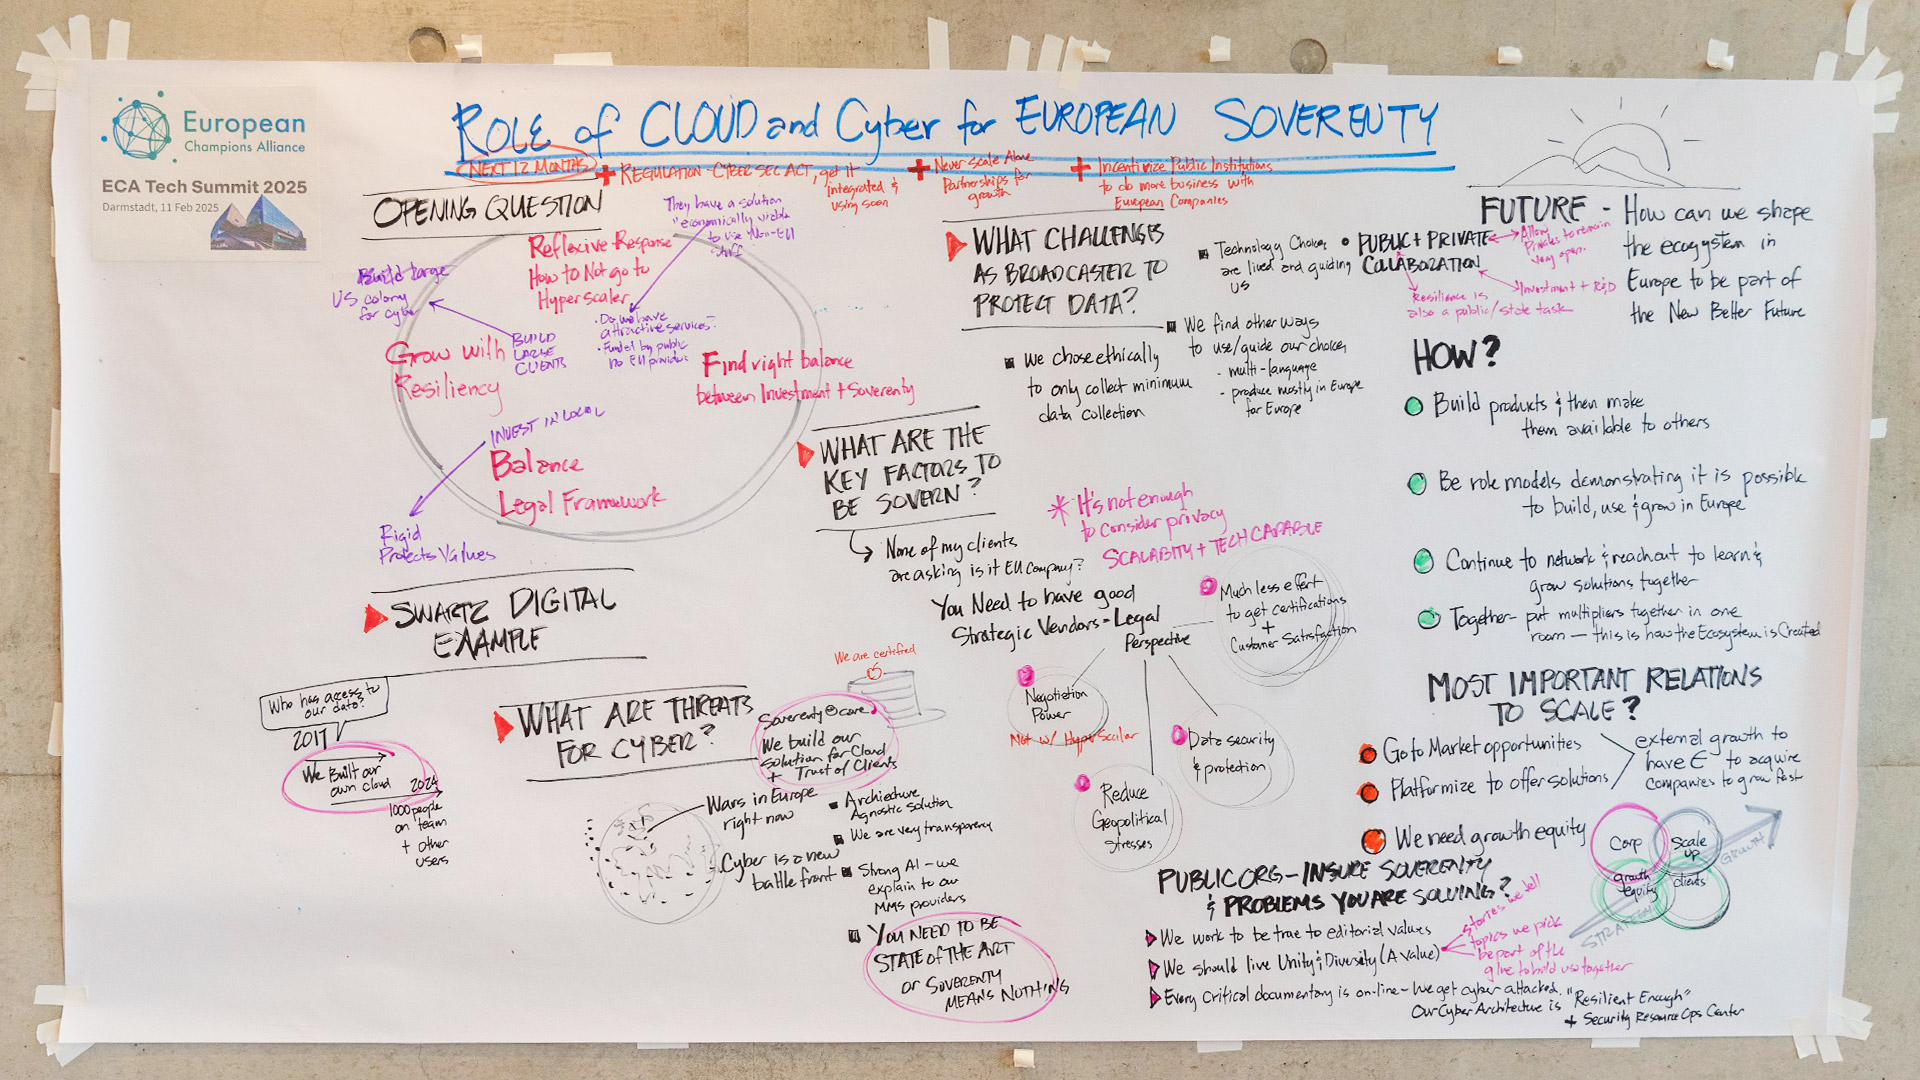 European
Champions Alliance
ECA Tech Summit 2025
Darmstadt, 11 Feb 2025
ROLE of CLOUD and Cyber for EUROPEAN SOVERENTY
NEXT 12 MONTHS
+ REGULATION-CYBER SEC ACT, get it
integrated &
using soon
+ Never scale Alone
Partnerships for
growth
+ Incentivize Public Institutions
to do more business with
European Companies
OPENING QUESTION
They have a solution
"economically viable
to use Non-EU
stuff
Reflexive Response
How to Not go to
Hyperscaler
Build large
US colony
for cyber
BUILD
LARGE
CLIENTS
• Do we have
attractive services?
• Funded by public
no EU provider
Grow with
Resiliency
Find right balance
between Investment + Soverenty
INVEST IN LOCAL
Balance
Legal Framework
Rigid
Protects Values
SWARTZ DIGITAL
EXAMPLE
Who has access to
our data?
2017
We Built our
own cloud
2024
1000 people
on team
+ other
users
WHAT ARE THREATS
FOR CYBER?
We are certified
Soverenty @ core
We build our
solution for Cloud
+ Trust of Clients
Wars in Europe
right now
Cyber is a new
battle front
Archiecture
Agnostic solution
We are very transparency
Strong AI - we
explain to our
MMS providers
YOU NEED TO BE
STATE of THE ART
or SOVERENTY
MEANS NOTHING
WHAT CHALLENGES
AS BROADCASTER TO
PROTECT DATA?
Technology Choices
are lived and guiding
us
We chose ethically
to only collect minimum
data collection
We find other ways
to use/guide our choices
- multi-language
- produce mostly in Europe
for Europe
• PUBLIC + PRIVATE
COLLABORATION
Allow
Privates to remain
very open.
Investment + R&D
Resilience is
also a public/state task
WHAT ARE THE
KEY FACTORS TO
BE SOVERN?
None of my clients
are asking is it EU company?
* It's not enough
to consider privacy
SCALABITY + TECH CAPABLE
You Need to have good
Strategic Vendors - Legal
Perspective
Much less effort
to get certifications
+
Customer Satisfaction
Negotiation
Power
Not w/ HyperScalar
Data security
& protection
Reduce
Geopolitical
stresses
FUTURE - How can we shape
the ecosystem in
Europe to be part of
the New Better Future
HOW?
Build products & then make
them available to others
Be role models demonstrating it is possible
to build, use & grow in Europe
Continue to network & reach out to learn &
grow solutions together
Together - put multipliers together in one
room - this is how the Ecosystem is Created
MOST IMPORTANT RELATIONS
TO SCALE?
Go to Market opportunities
Platformize to offer solutions
external growth to
have € to acquire
companies to grow fast
We need growth equity
Corp
Scale
up
growth
equity
clients
GROWTH
PUBLIC ORG - INSURE SOVERENTY
& PROBLEMS YOU ARE SOLVING?
We work to be true to editorial values
We should live Unity & Diversity (A value)
stories we tell
topics we pick
be part of the
glue to hold us together
Every Critical documentary is on-line - We get cyber attacked.
Our Cyber Architecture is "Resilient Enough"
+ Security Resource Ops Center